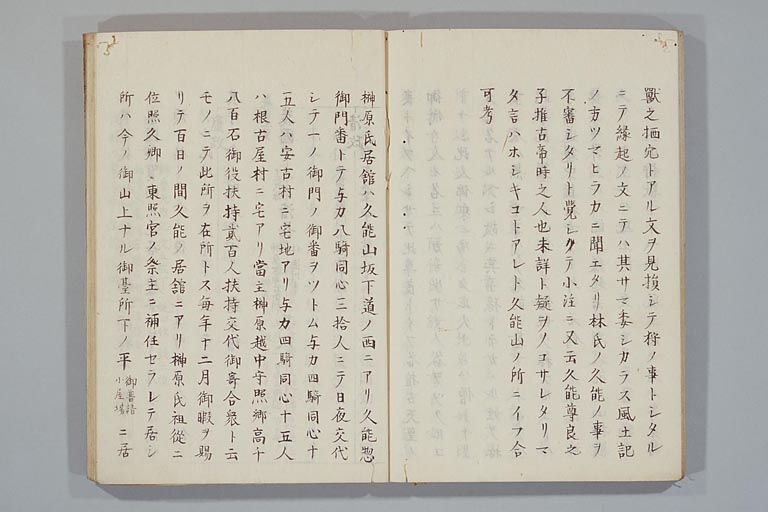 獸之栖完トアル文ヲ見損シテ狩ノ事トシタル
ニテ縁起ノ文ニテハ其サマ委シカラス風土記
ノ方ツマヒラカニ聞エタリ林氏ノ久能ノ事ヲ
不審シタリト覺シクテ小注ニ又云久能尊良之
子推古帝時之人也未詳ト疑ヲノコサレタリマ
タ言ハホシキコトアレト久能山ノ所ニイフ合
可考
榊原氏居舘ハ久能山坂下道ノ西ニアリ久能惣
御門番トテ与力八騎同心三拾人ニテ日夜交代
シテ一ノ御門ノ御番ヲツトム与力四騎同心十
五人ハ安古村ニ宅地アリ与力四騎同心十五人
ハ根古屋村ニ宅アリ當主榊原越中守照郷高千
八百石御役扶持貳百人扶持交代御寄合衆ト云
モノニテ此所ヲ在所トス毎年十二月御暇ヲ賜
リテ百日ノ間久能ノ居舘ニアリ榊原氏祖從二
位照久卿、東照宮ノ祭主ニ補任セラレテ居シ
所ハ今ノ御山上ナル御臺所下ノ平御普請小屋場ニ居